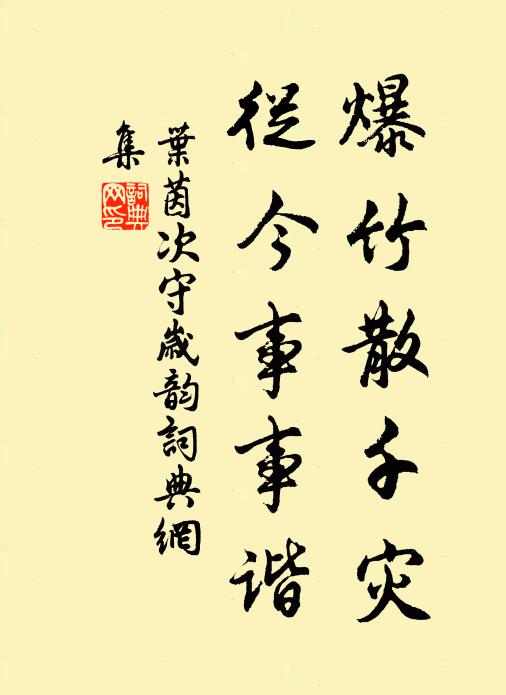 爆竹散千灾
從今事事谐
葉茵次守歲韵詞典網
集
詞典網印